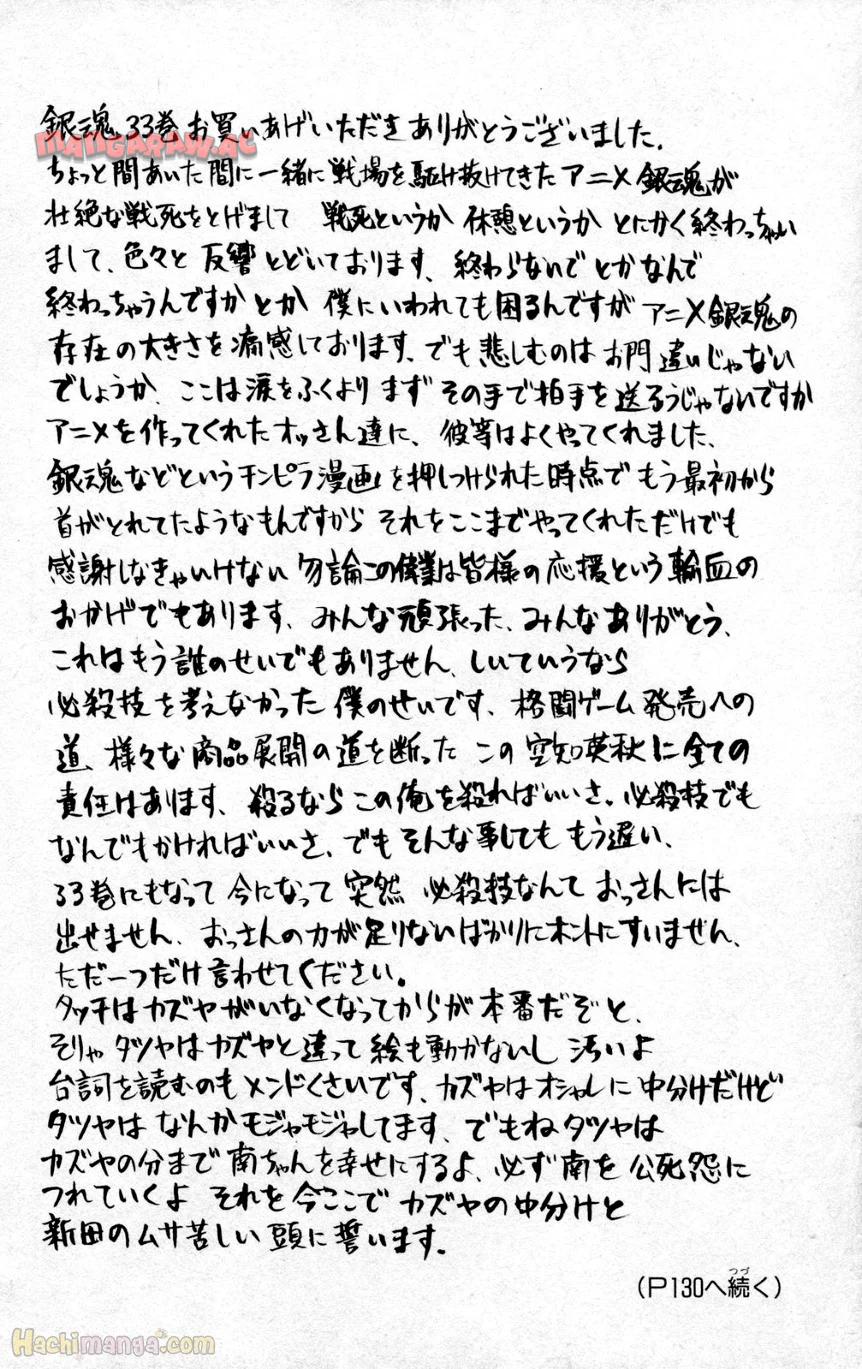 銀魂33巻お買いあげいただきありがとうございました。
MANGARAW.AC
ちょっと間あいた間に一緒に戦場を駆け抜けてきたアニメ銀魂が
壮絶な戦死をとげまして 戦死というか 休憩というか とにかく終わっちゃい
まして、色々と 反響とどいております、終わらないでとかなんで
終わっちゃうんですかとか 僕にいわれても困るんですが アニメ銀魂の
存在の大きさを痛感しております、でも悲しむのは お門違いじゃない
でしょうか、ここは涙をふくより まず その手で拍手を送ろうじゃないですか
アニメを作ってくれたオッさん達に、彼等はよくやってくれました、
銀魂などというチンピラ漫画を押しつけられた時点で もう最初から
首がとれてたようなもんですから それをここまでやってくれただけでも
感謝しなきゃいけない 勿論この偉業は皆様の応援という輸血の
おかげでもあります、みんな頑張った、みんなありがとう、
これはもう誰のせいでもありません、しいていうなら
必殺技を考えなかった 僕のせいです、格闘ゲーム発売への
道、様々な商品展開の道を断った この空知英秋に全ての
責任はあります、殺るなら この俺を殺ればいいさ。必殺技でも
なんでもかければいいさ、でも そんな事しても もう遅い、
33巻にもなって 今になって 突然 必殺技なんて おっさんには
出せません、おっさんの力が足りないばかりにホントにすいません、
ただ一つだけ言わせてください。
タッチはカズヤがいなくなってからが本番だぞと、
そりゃ タツヤはカズヤと違って 絵も動かないし 汚いよ
台詞を読むのもメンドくさいです、カズヤはオシャレに中分けだけど
タツヤは なんかモジャモジャしてます、でもねタツヤは
カズヤの分まで南ちゃんを幸せにするよ、必ず南を公死怨に
つれていくよ それを今ここで カズヤの中分けと
新田のムサ苦しい頭に誓います。
(P130へ続く)
つづ
Hachimanga.com